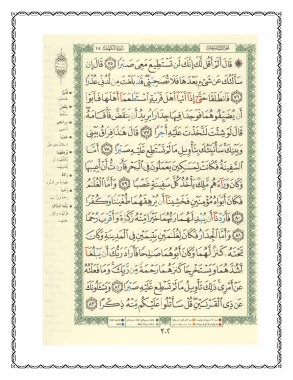 الجزء السادس عشر
سورة الكهف ١٨
۞ قَالَ أَلَمْ أَقُل لَّكَ إِنَّكَ لَن تَسْتَطِيعَ مَعِيَ صَبْرًا ٧٥ قَالَ إِن
سَأَلْتُكَ عَن شَيْءٍۭ بَعْدَهَا فَلَا تُصَٰحِبْنِى قَدْ بَلَغْتَ مِن لَّدُنِّى عُذْرًا
٧٦ فَٱنطَلَقَا حَتَّىٰٓ إِذَآ أَتَيَآ أَهْلَ قَرْيَةٍ ٱسْتَطْعَمَآ أَهْلَهَا فَأَبَوْا۟
أَن يُضَيِّفُوهُمَا فَوَجَدَا فِيهَا جِدَارًا يُرِيدُ أَن يَنقَضَّ فَأَقَامَهُۥ
قَالَ لَوْ شِئْتَ لَتَّخَذْتَ عَلَيْهِ أَجْرًا ٧٧ قَالَ هَٰذَا فِرَاقُ بَيْنِى
وَبَيْنِكَ سَأُنَبِّئُكَ بِتَأْوِيلِ مَا لَمْ تَسْتَطِع عَّلَيْهِ صَبْرًا ٧٨ أَمَّا
ٱلسَّفِينَةُ فَكَانَتْ لِمَسَٰكِينَ يَعْمَلُونَ فِى ٱلْبَحْرِ فَأَرَدتُّ أَنْ أَعِيبَهَا
وَكَانَ وَرَآءَهُم مَّلِكٌ يَأْخُذُ كُلَّ سَفِينَةٍ غَصْبًا ٧٩ وَأَمَّا ٱلْغُلَٰمُ
فَكَانَ أَبَوَاهُ مُؤْمِنَيْنِ فَخَشِينَآ أَن يُرْهِقَهُمَا طُغْيَٰنًا وَكُفْرًا
٨٠ فَأَرَدْنَآ أَن يُبْدِلَهُمَا رَبُّهُمَا خَيْرًا مِّنْهُ زَكَوٰةً وَأَقْرَبَ رُحْمًا
٨١ وَأَمَّا ٱلْجِدَارُ فَكَانَ لِغُلَٰمَيْنِ يَتِيمَيْنِ فِى ٱلْمَدِينَةِ وَكَانَ
تَحْتَهُۥ كَنزٌ لَّهُمَا وَكَانَ أَبُوهُمَا صَٰلِحًا فَأَرَادَ رَبُّكَ أَن يَبْلُغَآ
أَشُدَّهُمَا وَيَسْتَخْرِجَا كَنزَهُمَا رَحْمَةً مِّن رَّبِّكَ وَمَا فَعَلْتُهُۥ
عَنْ أَمْرِى ذَٰلِكَ تَأْوِيلُ مَا لَمْ تَسْطِع عَّلَيْهِ صَبْرًا ٨٢ وَيَسْـَٔلُونَكَ
عَن ذِى ٱلْقَرْنَيْنِ قُلْ سَأَتْلُوا۟ عَلَيْكُم مِّنْهُ ذِكْرًا ٨٣
٣٠٢